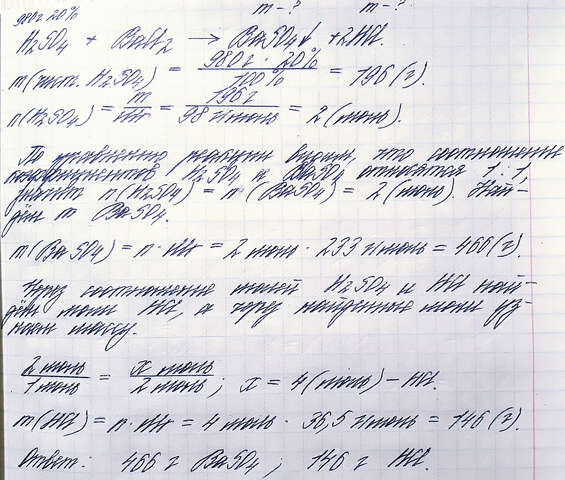 m - ? m - ?
980г 20%
H₂SO₄ + BaCl₂ → BaSO₄↓ + 2HCl.
m(чист. H₂SO₄) = 980г · 20% / 100% = 196 (г).
n(H₂SO₄) = m / Mr = 196г / 98 г/моль = 2 (моль).
По уравнению реакции видим, что соотношение
коэффициентов H₂SO₄ и BaSO₄ относится 1:1,
значит n(H₂SO₄) = n(BaSO₄) = 2 (моль). Най-
дём m BaSO₄.
m(BaSO₄) = n · Mr = 2 моль · 233 г/моль = 466 (г).
Через соотношение молей H₂SO₄ и HCl най-
дём моли HCl, а через найденные моли уз-
наем массу.
2 моль / 1 моль = x моль / 2 моль ; x = 4 (моль) - HCl.
m(HCl) = n · Mr = 4 моль · 36,5 г/моль = 146 (г).
Ответ: 466 г BaSO₄ ; 146 г HCl.